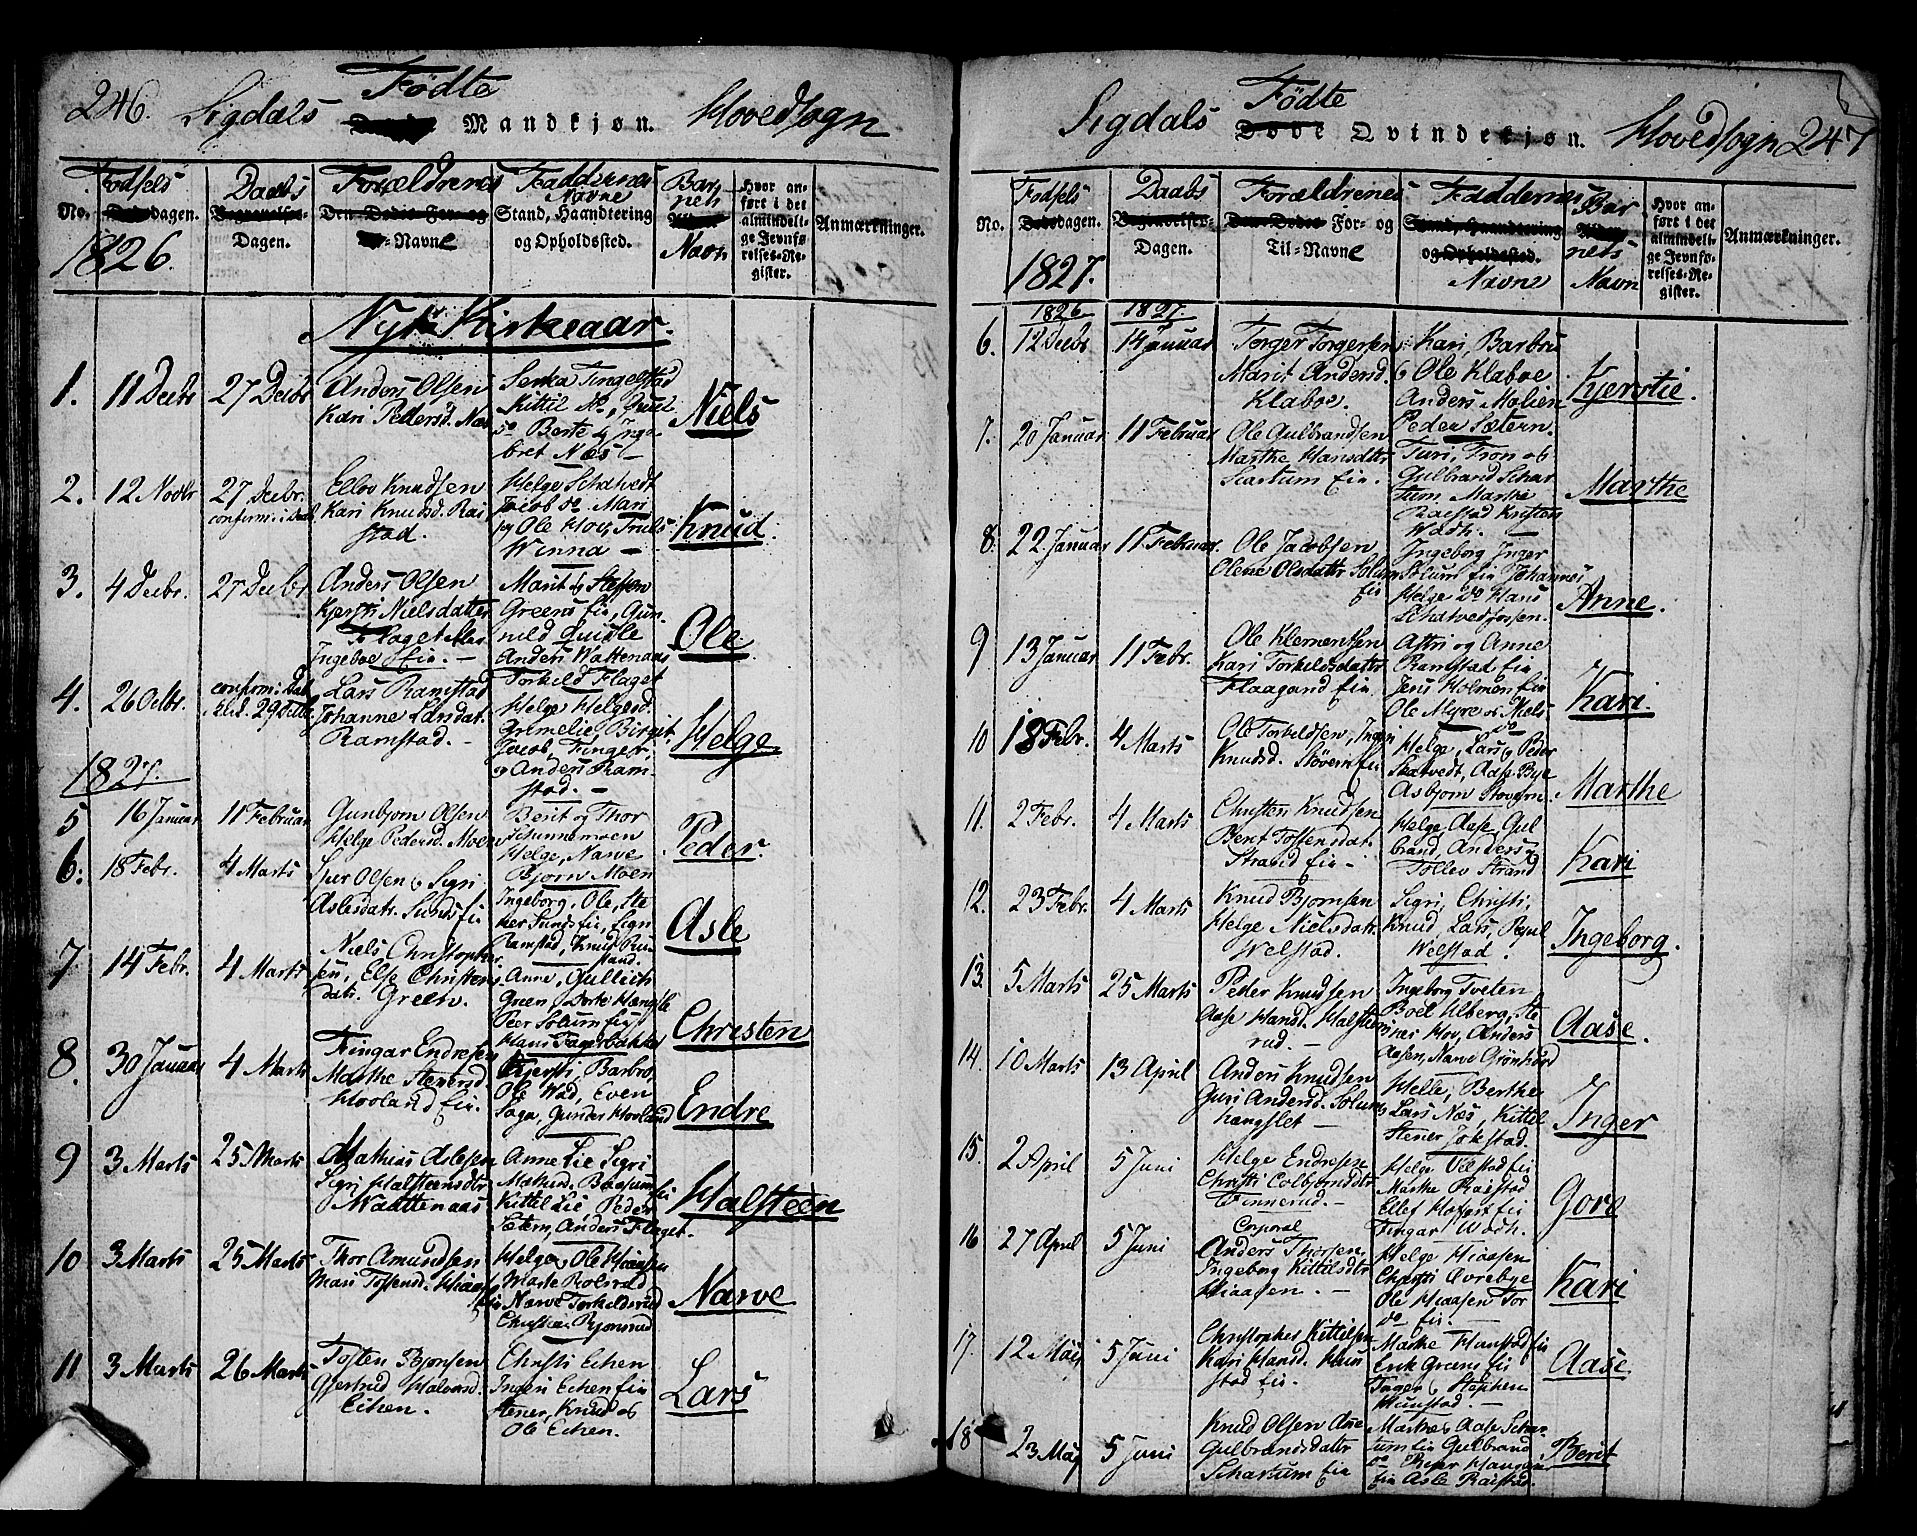 246. Sigdals Fødte Mandkjøn. Hovedsogn
No. Fødsels dagen. Daabs Dagen. Forældrenes Navne Faddernes Navne Stand, Haandtering og Opholdssted. Barnets Navn Hvor anført i det almindelige Jevnførelses-Register. Anmærkninger.
1826.
Nyt Kirkeaar.
1. 11 Decbr 27 Decbr Anders Olsen
Kari Pedersd. Næs
Senka Tingelstad
Kittil do,
Berte og Inge-
bret Næs
Niels
2. 12 Novbr 27 Decbr.
Ellov Knudsen
Kari Knudsd. Rai
stad.
Helge Schatvedt
Jacob do Mari
og Ole Hov, Truls
Winna
Knud
3. 4 Decbr. 27 Decbr
Anders Olsen
Kjersti Nielsdatter
Ingeboe Eie.
Marit og Steffen
Greens Eie, Gun-
nild Quisle
Anders Wattenaas
Torkeld Flaget
Ole
4. 26 Octbr.
Lars Ramstad
Johanne Larsdat.
Ramstad.
Helge Helgesd.
Grimelie, Birgit,
Jacob, Finger,
og Anders Ram-
stad.
Helge
1827.
5 16 Januar 11 Februar
Gunbjørn Olsen
Helge Pedersd. Moen
Berit og Thor
Helge, Narve
Bjørn Moen
Peder.
6. 18 Febr. 4 Marts
Siur Olsen og Sigri
Aslesdatr. Sunds Eie
Ingeborg, Ole, Ste
ner Sunds Eie,
Ramstad, Knud Run
Asle
7 14 Febr. 4 Marts
Niels Christopher
sen, Else Christens
datr. Green.
Anne, Gullich
Green, Dorte Hængsle
Peer Solum Eie
Hans Fagerbakke
Christen
8. 30 Januar 4 Marts
Fingar Endresen
Marthe Stenersd
Hovland Eie.
Kjersti, Barbro,
Ole Wad, Even
Saga, Gunder Hovland
Endre
9 3 Marts 25 Marts
Mathias Aslesen
Sigri Halsteensdtr
Waattenaas
Anne Lie Sigri
Kittil Lie, Peder
Sætern, Anders Flaget.
Halsteen
10 3 Marts 25 Marts
Thor Amundsen
Mari Tostensd. Hiaas
Eie
Helge, Ole Hiaasen
Marte Rolsrud
Narve Torkelsrud
Christian Bjørnrud
Narve
11 3 Marts 26 Marts
Tosten Bjønsen
Gjertrud Halvorsd.
Eichen.
Christi Eichen
Ingeri Eichen Eie
Stener, Knud og
Ole Eichen.
Lars
Sigdals Fødte Qvindekjøn. Hovedsogn 247
No. Fødsels dagen. Daabs Dagen. Forældrenes For- og Til-Navne Faddernes Navne Barnets Navn Hvor anført i det almindelige Jevnførelses-Register. Anmærkninger.
1827.
1826 1827.
6. 12 Decbr 14 Januar
Torger Torgersen
Marit Andersd.
Klaboe.
Kari, Barbro
og Ole Klaboe
Anders Molien
Peder Sætern.
Kjerstie.
7. 20 Januar 11 Februar
Ole Gulbrandsen
Marthe Hansdatter
Scartum Eie.
Turi, Tron og
Gulbrand Schar
tum, Marthe
Raistad Kristen
Wadh.
Marthe
8. 22 Januar 11 Februar
Ole Jacobsen
Olene Olsdatter Solum
Eie
Ingeborg Inger
Solum Eie Johannes
Helge do Hans
Schatvedfossen.
Anne.
9 13 Januar 11 Febr.
Ole Klementsen
Kari Torkildsdatter
Flaagand Eie.
Astri og Anne
Ramstad Eie
Jens Holmen Eie
Ole Myre og Niels
do
Kari.
10 18 Febr. 4 Marts
Ole Torkeldsen, Ingen
Knudsd. Støvern Eie
Helge, Lars og Peder
Skatvedt, Aase Bye
Asbjørn Støvern.
Marthe
11. 2 Febr. 4 Marts
Christen Knudsen
Berit Tostensdat.
Strand Eie
Helge, Aase, Gul
brand, Anders og
Tollev Strand
Kari
12. 23 Febr. 4 Marts
Knud Bjørnsen
Helge Nielsdatr
Welstad.
Sigri, Christi,
Knud, Lars,
Welstad.
Ingeborg.
13. 5 Marts 25 Marts
Peder Knudsen
Aase Hansd. Halsteens
rud.
Ingeborg Tveten
Boel Ulberg, Ste
ner Hov, Anders
Aasen, Narve Grønhovd
Aase.
14. 10 Marts 13 April
Anders Knudsen
Guri Andersd. Solums
hængslet
Helle, Berthe
Lars Næs, Kittel
Stener Jokstad.
Inger
15. 2 April 5 Juni
Helge Endresen
Christi Colbjørnsdtr
Finnerud.
Helge Velstad Eie
Marthe Raistad
Ellef Hofart Eie
Fingar Wadh.
Goro
16 27 April 5 Juni
Corporal
Anders Thorsen,
Ingeborg Kittilsdtr
Hiaasen.
Helge Hiaasen
Christi Overbye
Ole Hiaasen Tor
do Eie.
Kari
17. 12 Maij 5 Juni
Christopher Kittilsen
Kari Hansd. Huus
stad Eie.
Marthe Haustad Eie
Erik Greens Eie
Inger og Stephen
Huustad.
Aase
18 23 Maij 5 Juni
Knud Olsen Ane
Gulbrandsdatter
Schartum Eie
Marthe, Aase Schar-
tum Eie Gulbrand
do
Eie Asle Raistad.
Berit